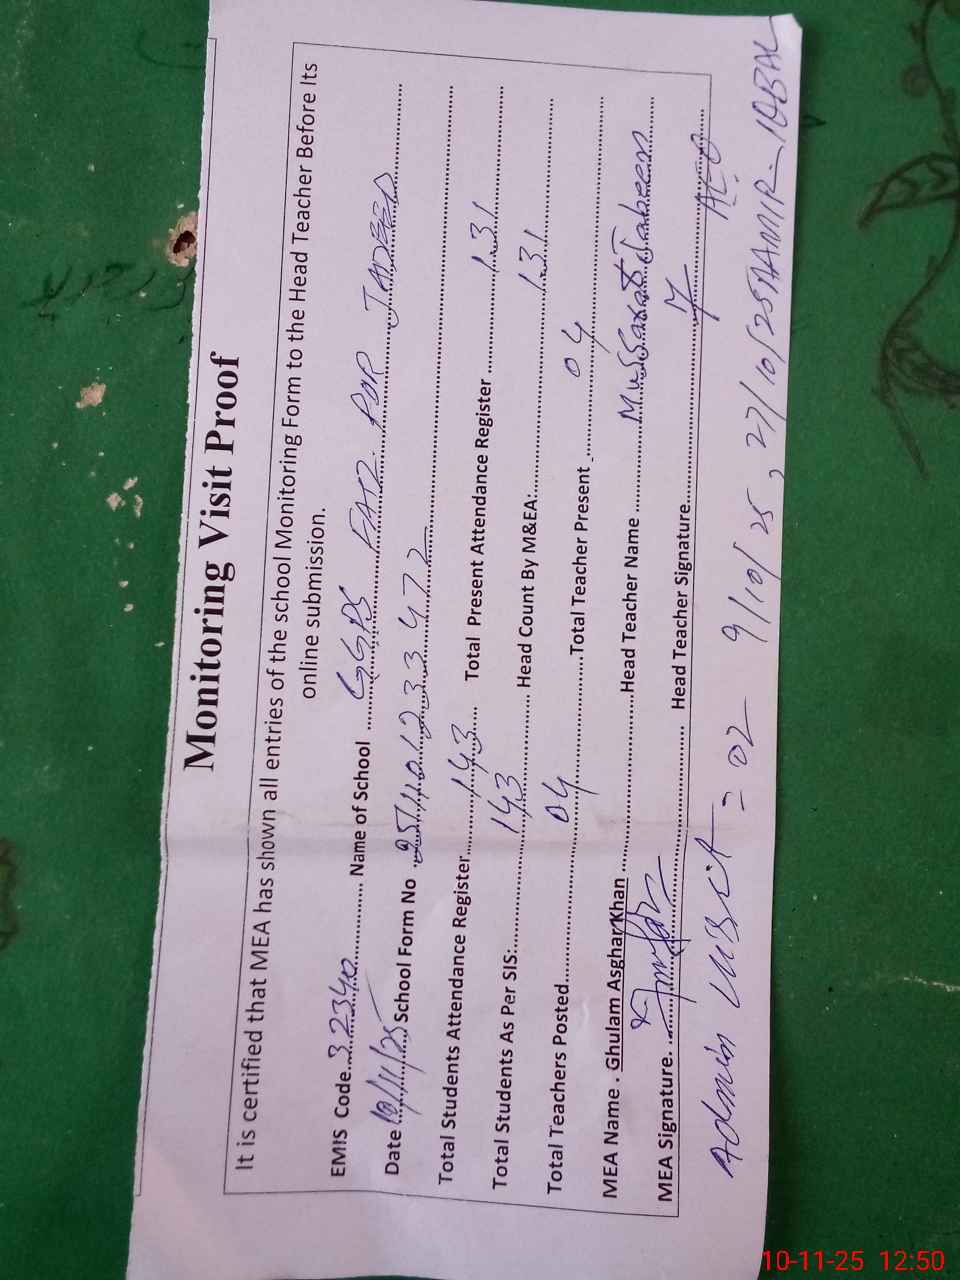 Monitoring Visit Proof
It is certified that MEA has shown all entries of the school Monitoring Form to the Head Teacher Before Its
online submission.
EMIS Code...32340............ Name of School .....GGPS FAIZ PUR JADEED
Date 10/11/25 School Form No .2511101233472
Total Students Attendance Register....143.... Total Present Attendance Register ..........131
Total Students As Per SIS:.........143......... Head Count By M&EA:..........131
Total Teachers Posted..........04..........Total Teacher Present ..........04
MEA Name . Ghulam Asghar Khan ....................Head Teacher Name ..........Mussarat Jabeen
MEA Signature. .................... Head Teacher Signature....................
Admin Visit = 02 9/10/25, 27/10/25 AAMIR IQBAL
AEO
10-11-25 12:50